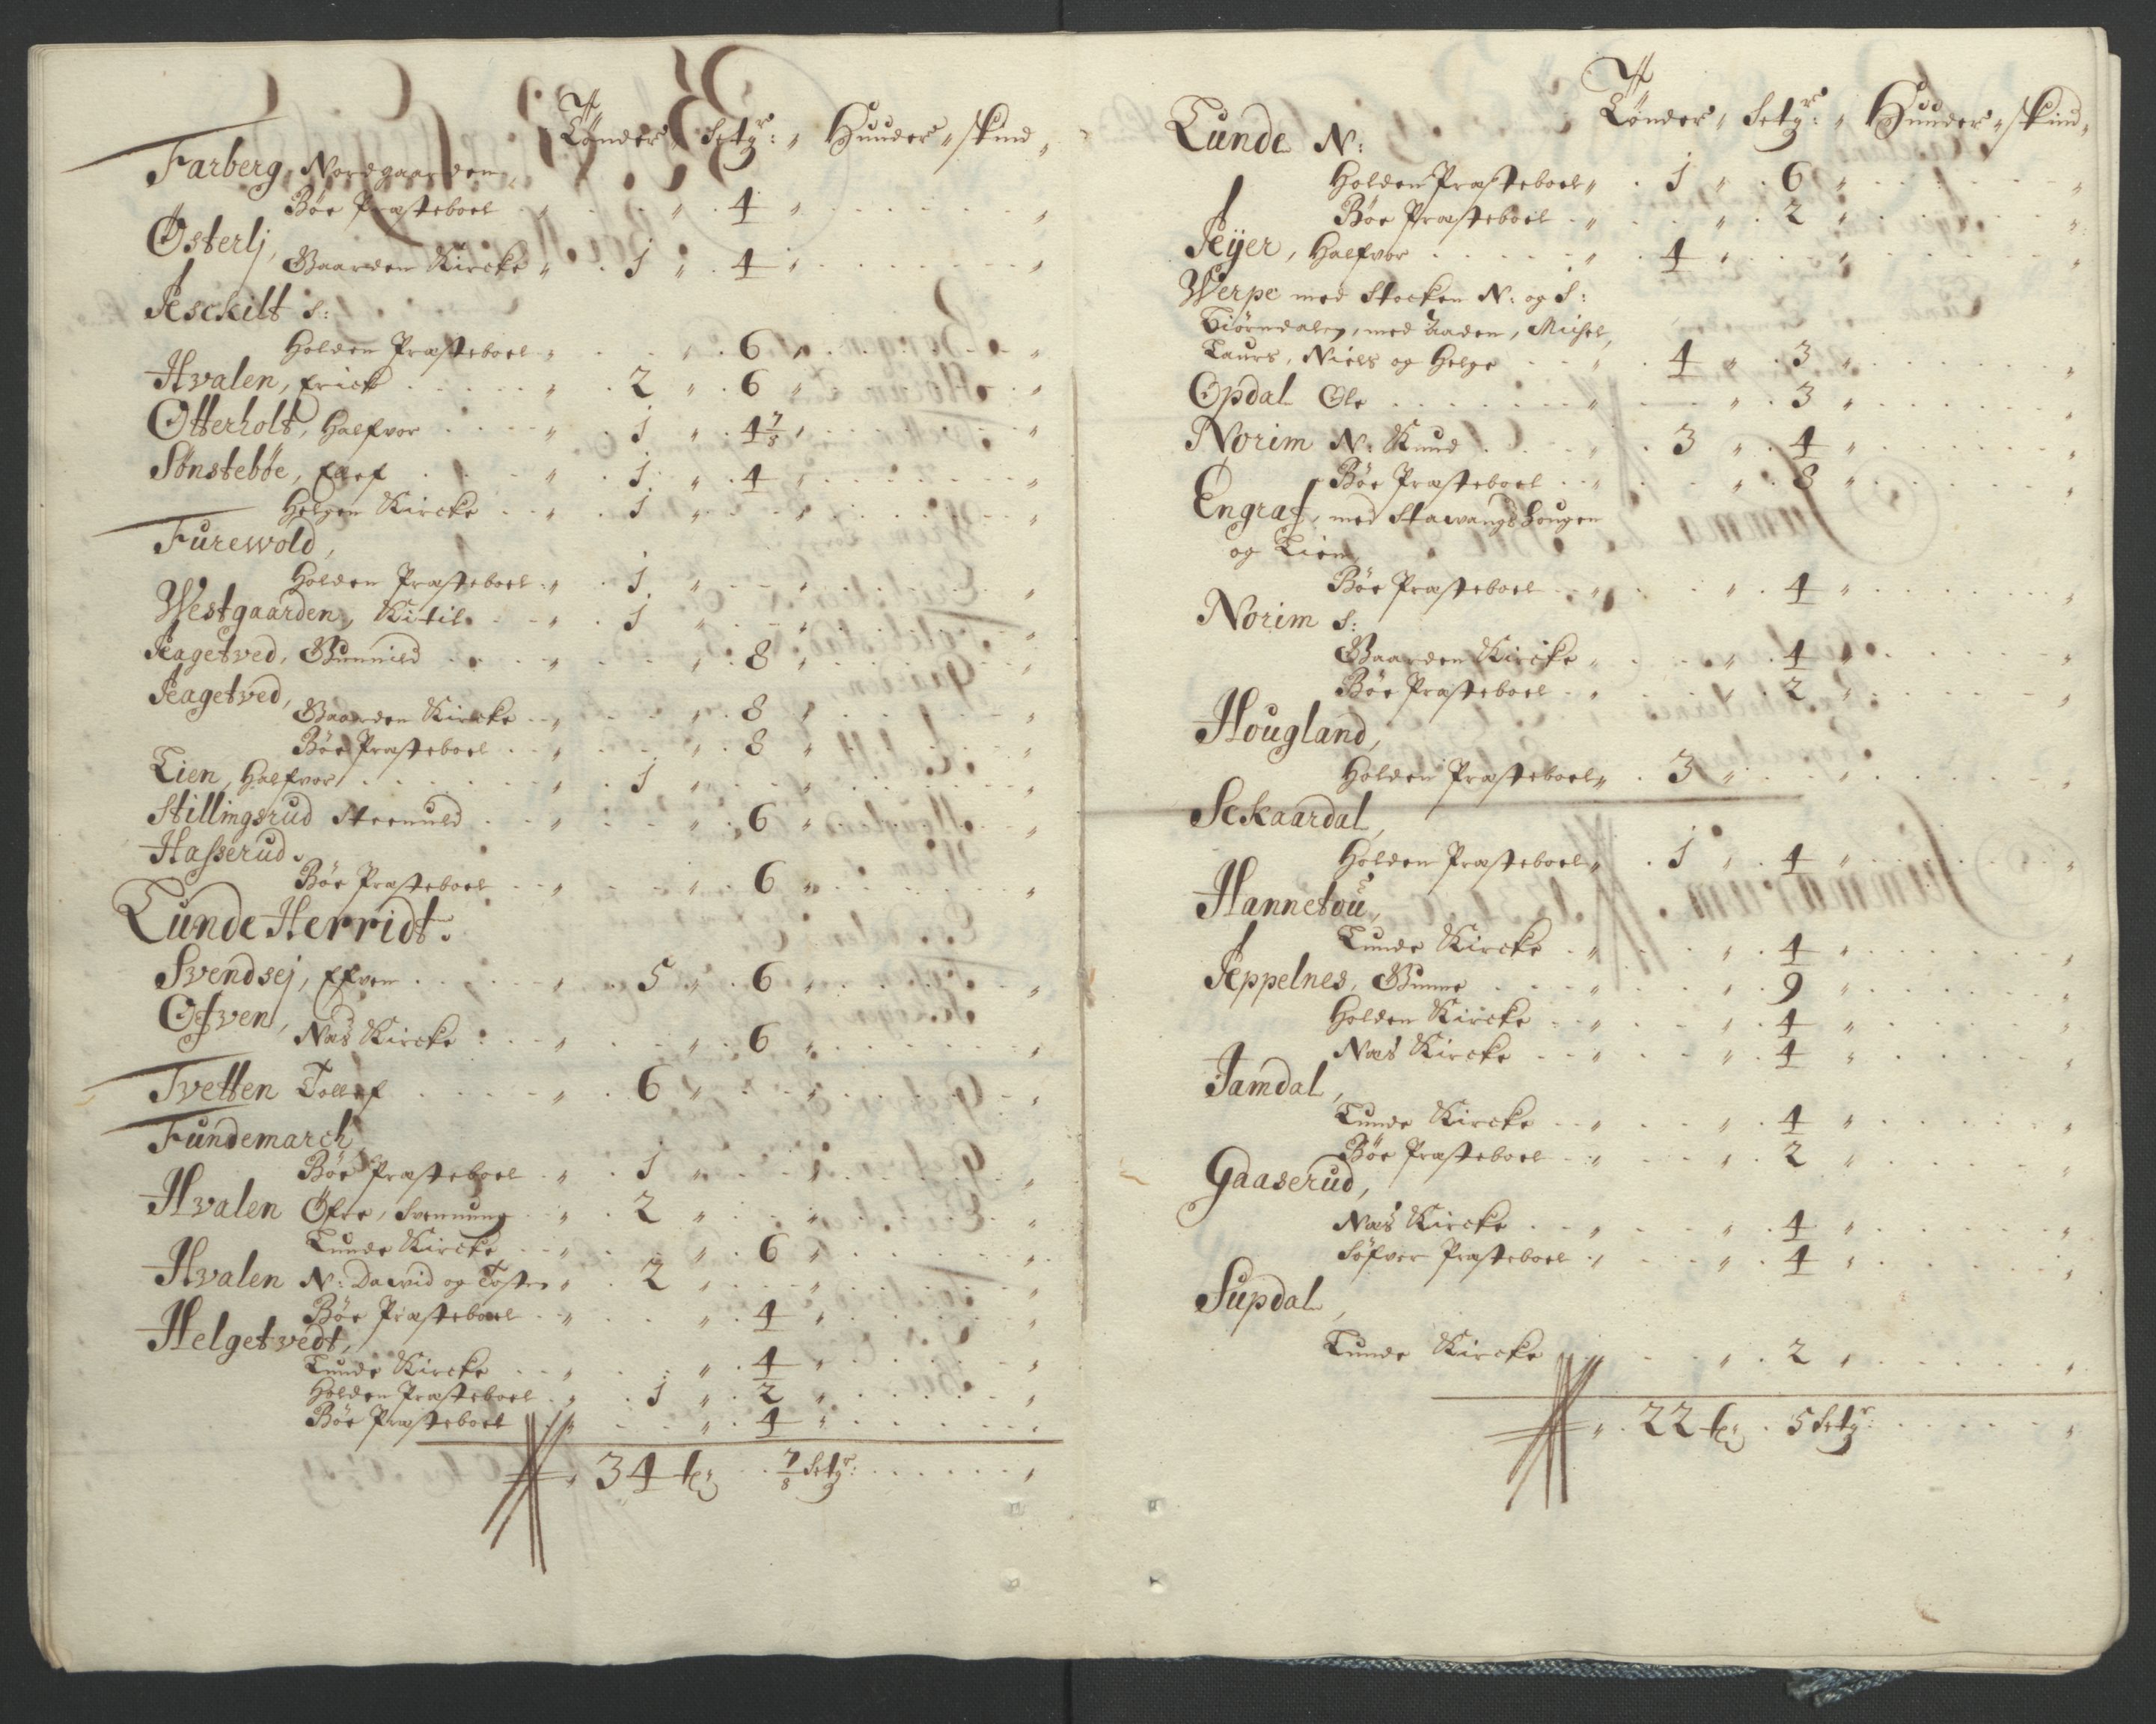 Tønder „ Setgr: „ Huuder „ skind „
Farberg, Nordgaarden
Bøe Præsteboel „ . . „ . 4 „
Østerlj,
Gaarden Kircke „ . 1 „ . 4 „
Æsckilt S:
Holden Præsteboel „ . . „ 6 „
Hvalen, Erick „ . 2 „ 6 „
Otterholt, Halfvor „ . 1 „ . 4 7/8 „
Sønstebøe, „ . 1 „ . 4 „
Helgen Kircke „ . 1 „
Furewold,
Holden Præsteboel „ . 1 „
Westgaarden, Kitil „ . 1 „
Aagetved, Gunnild „ . . „ . 8 „
Aagetved,
Gaarden Kircke „ . . „ . 8 „
Bøe Præsteboel „ . . „ . 8 „
Lien, Halfvor „ . 1 „
Stillingsrud „ . . „ . 6 „
Hasserud.
Bøe Præsteboel „ . . „ . 6 „
Lunde Herridt.
Svendsej, Efven „ . 5 „ . 6 „
Ofven,
Næs Kircke „ . . „ . 6 „
Tvetten Tollef „ . 6 „
Fundemarch
Bøe Præsteboel „ . 1 „
Hvalen Øfre, Svennung „ . 2 „
Lunde Kircke „ . . „ . 6 „
Hvalen N: Dawid og Tosten „ . 2 „
Bøe Præsteboel „ . . „ . 4 „
Helgetvedt,
Lunde Kircke „ . . „ . 4 „
Holden Præsteboel „ . 1 „ . 2 „
Bøe Præsteboel „ . . „ . 4 „
34 tr . 7/8 Setgr: „
Tønder „ Setgr: „ Huuder „ skind „
Lunde N:
Holden Præsteboel „ . 1 „ . 6 „
Bøe Præsteboel „ . . „ . 2 „
Æijer, Halfvor „ . 4 „
Werpe med Stocken N: og S:
Tiørndalen, med Aaden, Michel,
Laurs, Niels og Helge „ . 4 „ . 3 „
Opdal Ole „ . . „ . 3 „
Norim N: Knud „ . 3 „ . 4 „
Bøe Præsteboel „ . . „ . 8 „
Engraf, med Stawangshougen
og Lien
Bøe Præsteboel „ . . „ . 4 „
Norim S:
Gaarden Kircke „ . . „ . 4 „
Bøe Præsteboel „ . . „ . 2 „
Hougland,
Holden Præsteboel „ . 3 „
Sckaardal,
Holden Præsteboel „ . 1 „ . 4 „
Hannetou,
Lunde Kircke „ . . „ . 4 „
Æppelnes, Gunne „ . . „ . 9 „
Holden Kircke „ . . „ . 4 „
Næs Kircke „ . . „ . 4 „
Jamdal,
Lunde Kircke „ . . „ . 4 „
Bøe Præsteboel „ . . „ . 2 „
Gaaserud,
Næs Kircke „ . . „ . 4 „
Søfver Præsteboel „ . . „ . 4 „
Supdal,
Lunde Kircke „ . . „ . 2 „
„ . 22 tr . 5 Setgr: „